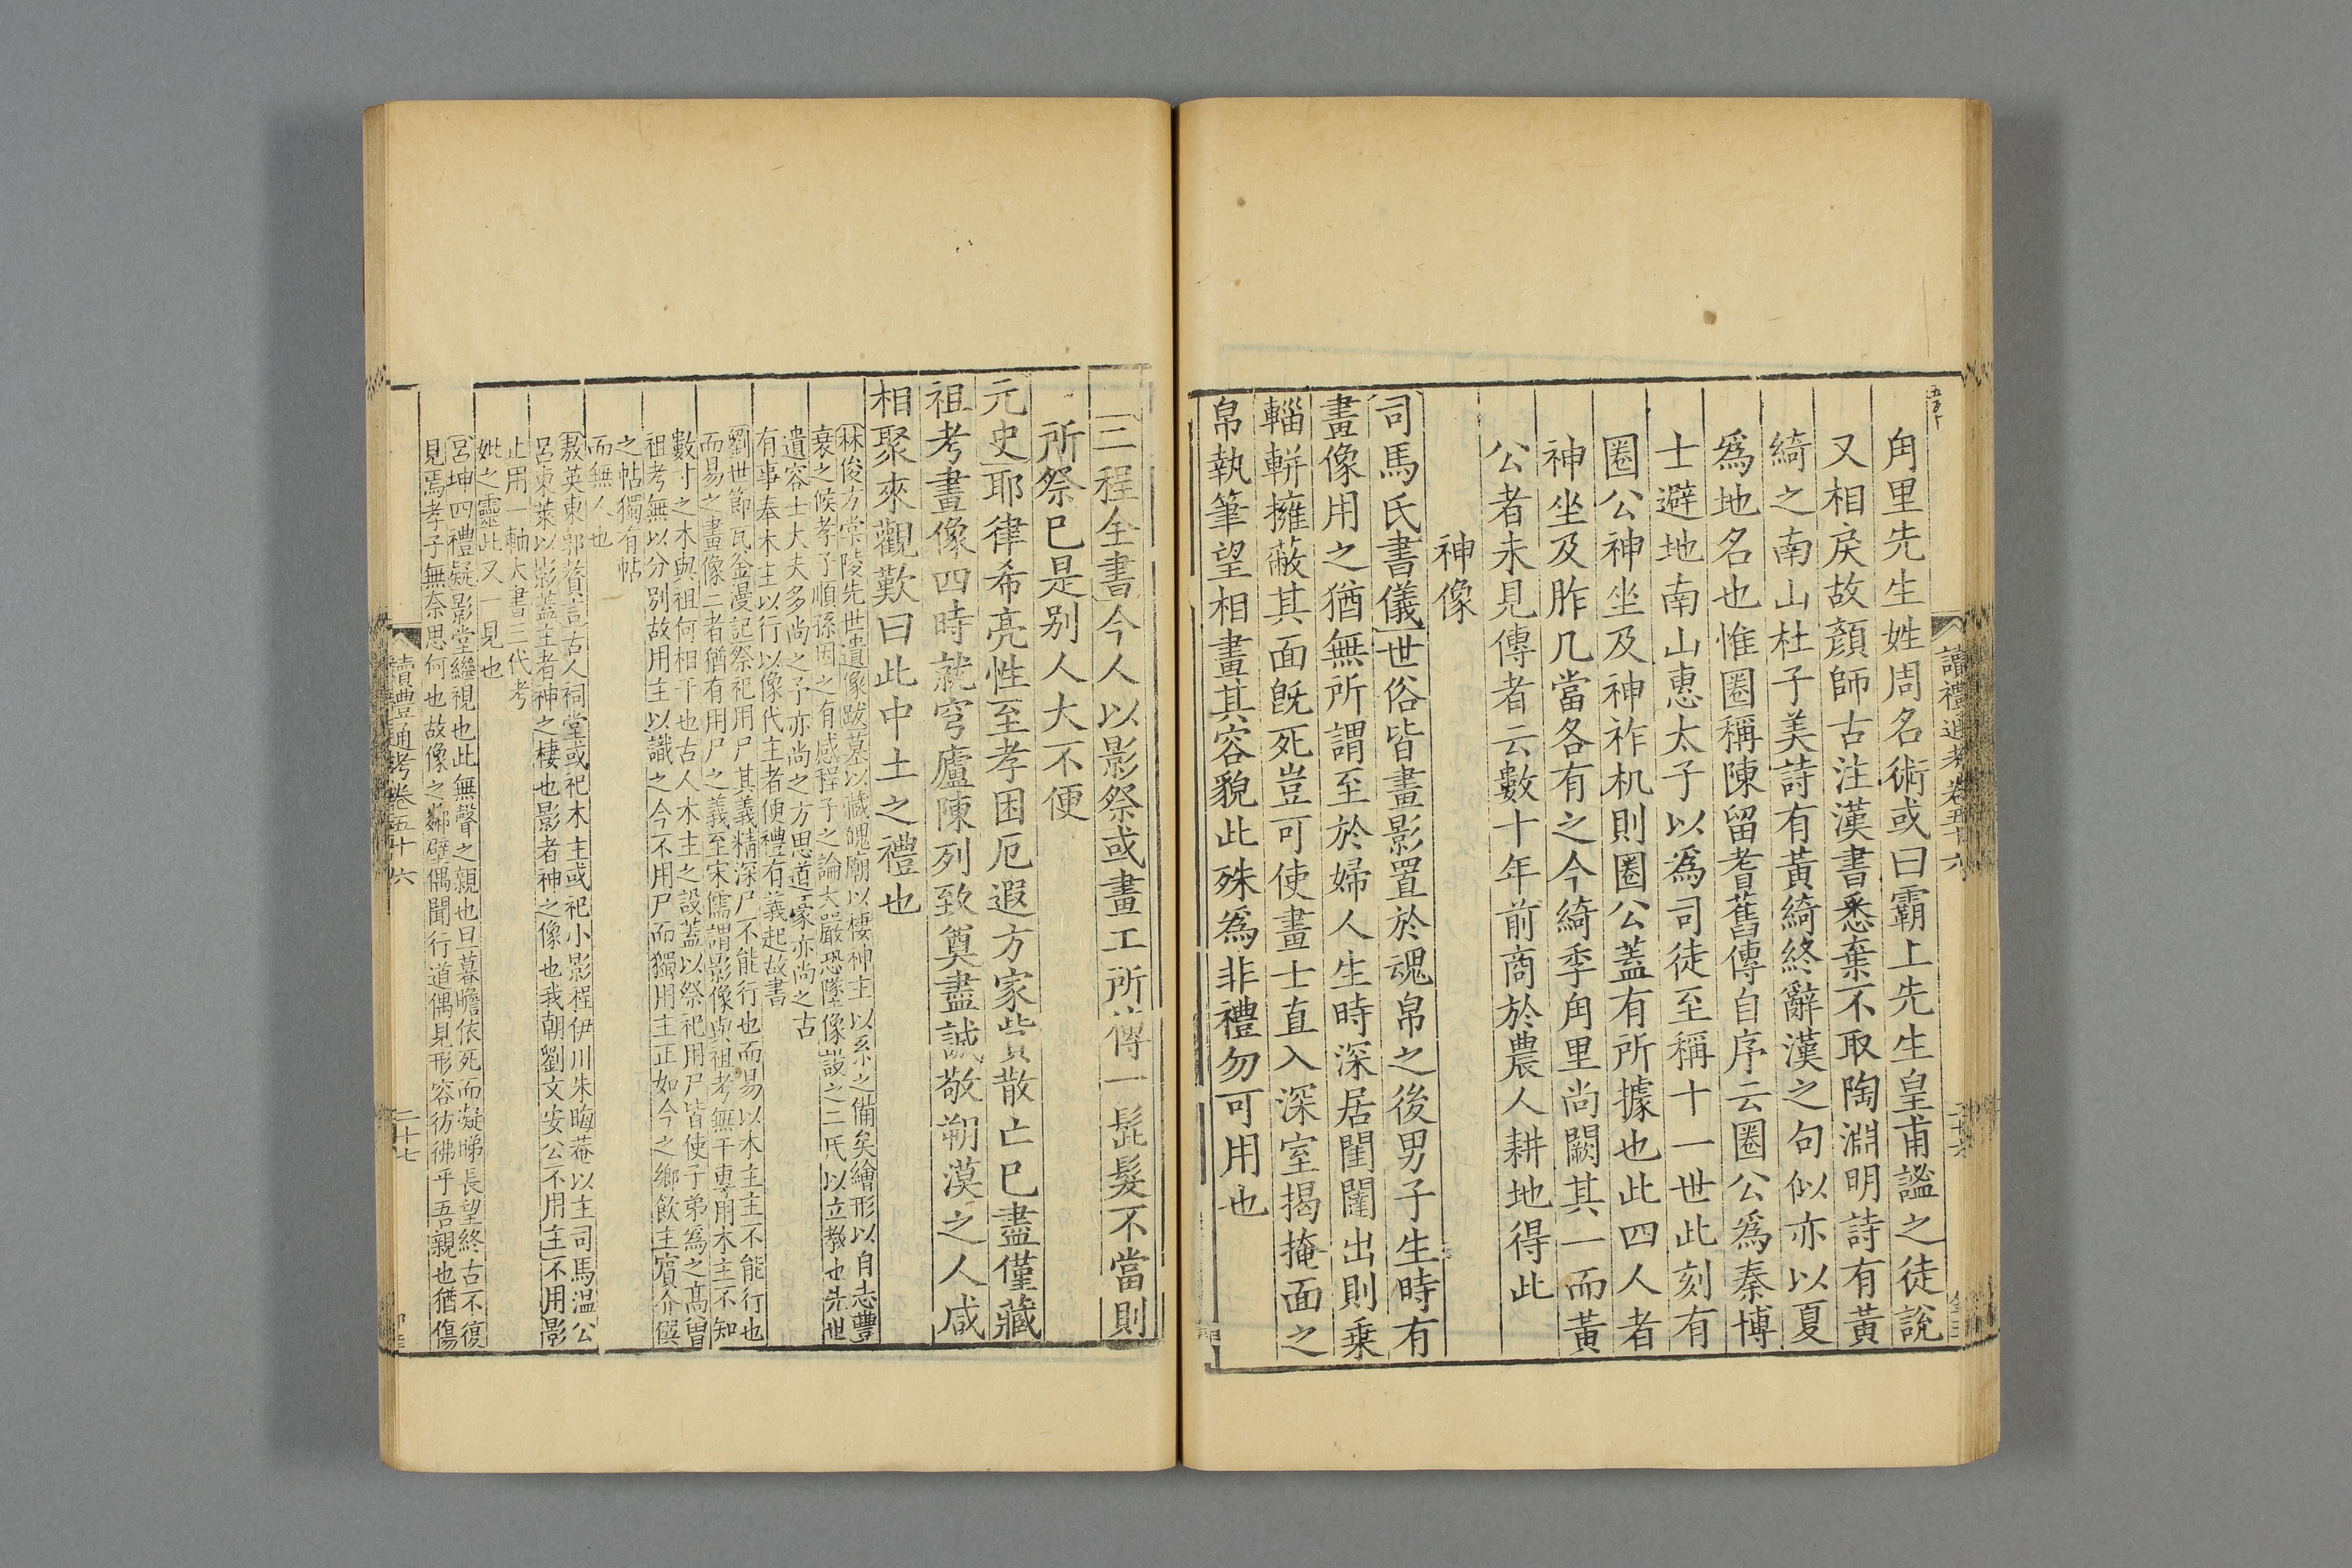 讀禮通考卷五十六
角里先生姓周名術或曰霸上先生皇甫謐之徒說
又相戾故顏師古注漢書悉棄不取陶淵明詩有黃
綺之南山杜子美詩有黃綺終辭漢之句似亦以夏
爲地名也惟圈稱陳留耆舊傳自序云圈公爲秦博
士避地南山惠太子以爲司徒至稱十一世此刻有
圈公神坐及神祚机則圈公蓋有所據也此四人者
神坐及胙几當各有之今綺季角里尚闕其一而黃
公者未見傳者云數十年前商於農人耕地得此
神像
司馬氏書儀世俗皆畫影置於魂帛之後男子生時有
畫像用之猶無所謂至於婦人生時深居閨闥出則乗
輜軿擁蔽其面旣死豈可使畫士直入深室揭掩面之
帛執筆望相畫其容貌此殊爲非禮勿可用也
二程全書今人以影祭或畫工所傳一髭髮不當則
所祭巳是别人大不便
元史耶律希亮性至孝困厄遐方家貲散亡巳盡僅藏
祖考畫像四時就穹廬陳列致奠盡誠敬朔漠之人咸
相聚來觀歎曰此中土之禮也
林俊方棠陵先世遺像跋墓以藏魄廟以棲神主以系之備矣繪形以自志豐
衰之候孝子順孫因之有感程子之論太嚴恐墜像設之二氏以立教也先世
遺容士大夫多尚之予亦尚之方思道豪亦尚之古
有事奉木主以行以像代主者便禮有義起故書
劉世節瓦釜漫記祭祀用尸其義精深尸不能行也而易以木主主不能行也
而易之畫像二者猶有用尸之義至宋儒謂影像與祖考無干專用木主不知
數寸之木與祖何相干也古人木主之設蓋以祭祀用尸皆使子弟爲之髙曾
祖考無以分别故用主以識之今不用尸而獨用主正如今之鄉飲主賓介僎
之帖獨有帖
而無人也
敖英東郭贅言古人祠堂或祀木主或祀小影程伊川朱晦菴以主司馬温公
呂東萊以影蓋主者神之棲也影者神之像也我朝劉文安公不用主不用影
止用一軸大書三代考
妣之靈此又一見也
呂坤四禮疑影堂繼視也此無聲之親也日暮瞻依死而凝睇長望終古不復
見焉孝子無奈思何也故像之鄰壁偶聞行道偶見形容彷彿乎吾親也猶傷
讀禮通考卷五十六
二十七